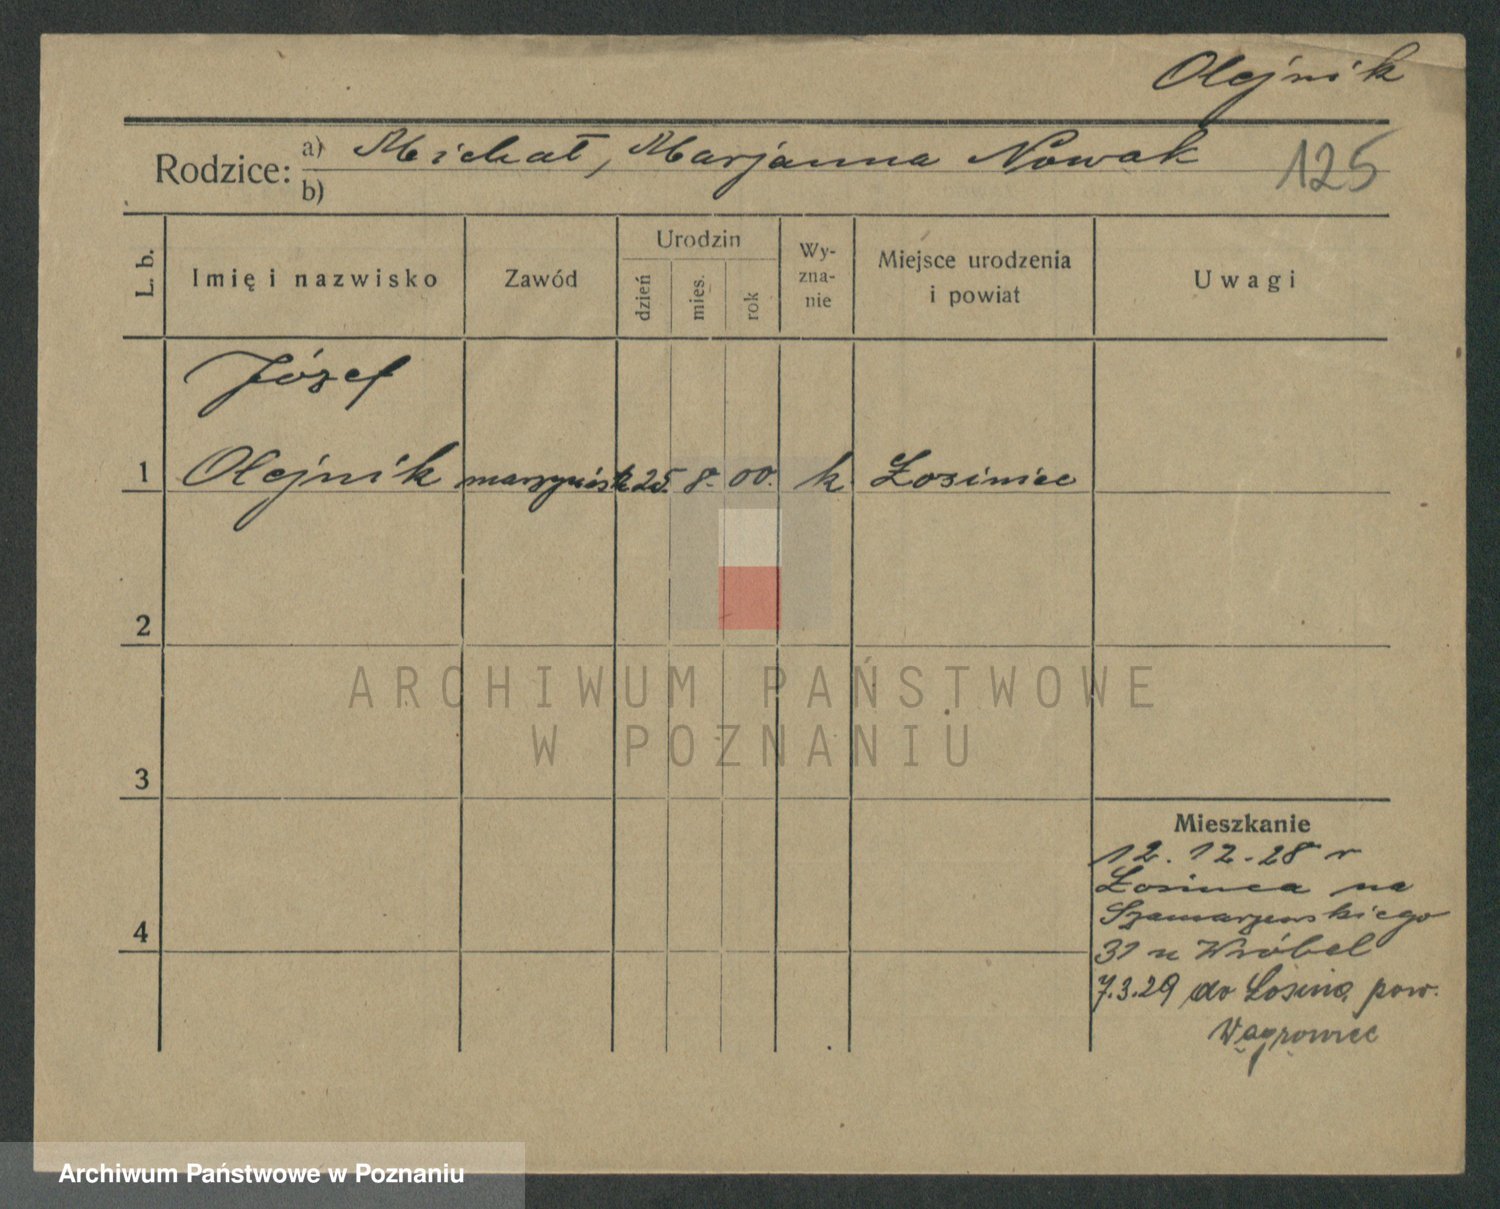 Olejnik
Rodzice: a) Michał, Marjanna Nowak
b)
125
L. b.
Imię i nazwisko
Zawód
Urodzin
dzień
mies.
rok
Wy-
zna-
nie
Miejsce urodzenia
i powiat
Uwagi
Józef
1 Olejnik maszynista 25. 8. 00. k Łosiniec
2
3
4
Mieszkanie
12.12.28 r
Łosinca na
Szamarzewskiego
31 u Wróbel
7.3.29 do Łosinc pow.
Wągrowiec
ARCHIWUM PAŃSTWOWE
W POZNANIU
Archiwum Państwowe w Poznaniu